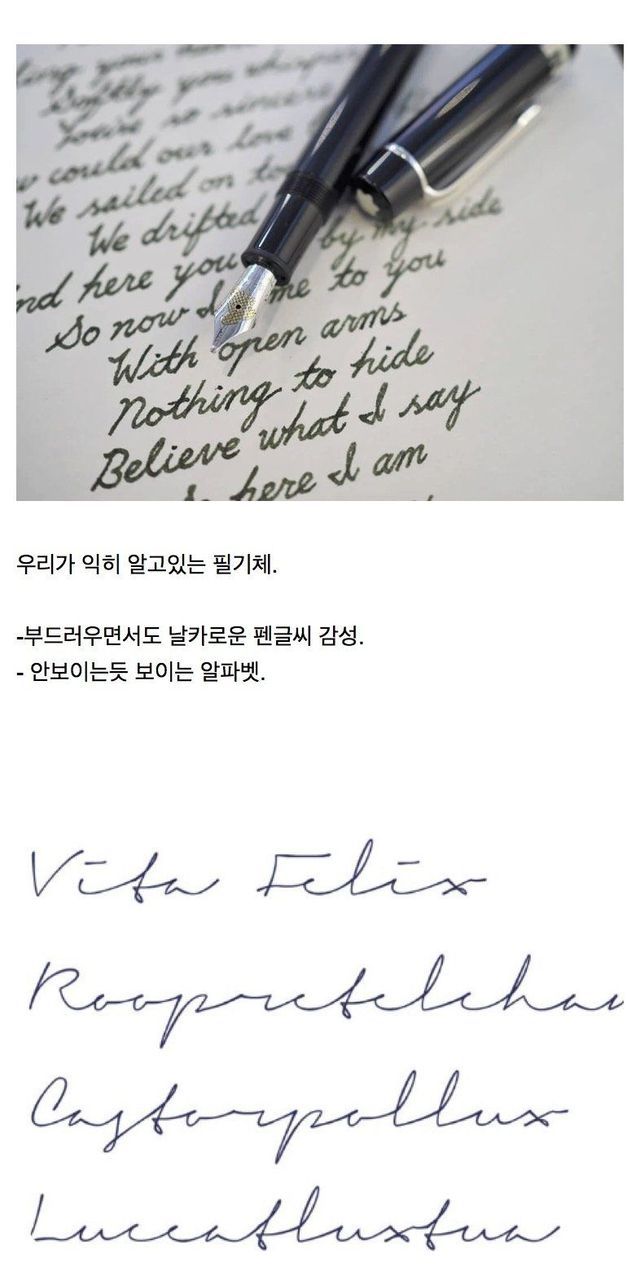 ting your
Softly you whisper
You're so sincere
could our love
We sailed on
We drifted
by my side
nd here you
So now I me to you
With open arms
Nothing to hide
Believe what I say
here I am
우리가 익히 알고있는 필기체.
-부드러우면서도 날카로운 펜글씨 감성.
- 안보이는듯 보이는 알파벳.
Vita Felix
Castorpollux